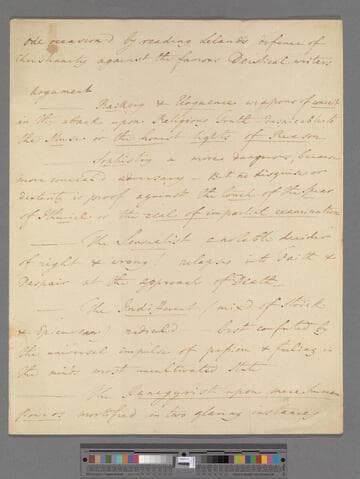 Ode occasion'd by reading Lelands defence of
Christianity against the famous Deistical writers
Argument
& Eloquence weapons of
in the attack upon Religious Truth
the Muse or the honest lights of Reason
Sophistry a more dangerous, because
more conceal'd adversary - But no disguise or
dexterity is proof against the touch of the Spear
of Ithuriel or the zeal of impartial examination
The Sensualist a
of right & wrong! relapses into Faith &
Despair at the approach of Death
The Indifferent (mix'd of Stoick
& Epicurean) best confuted by
the universal impulse of passion & feeling in
the minds most uncultivated State
The Panegyrist upon mere human
Powers mortified in two glaring instances